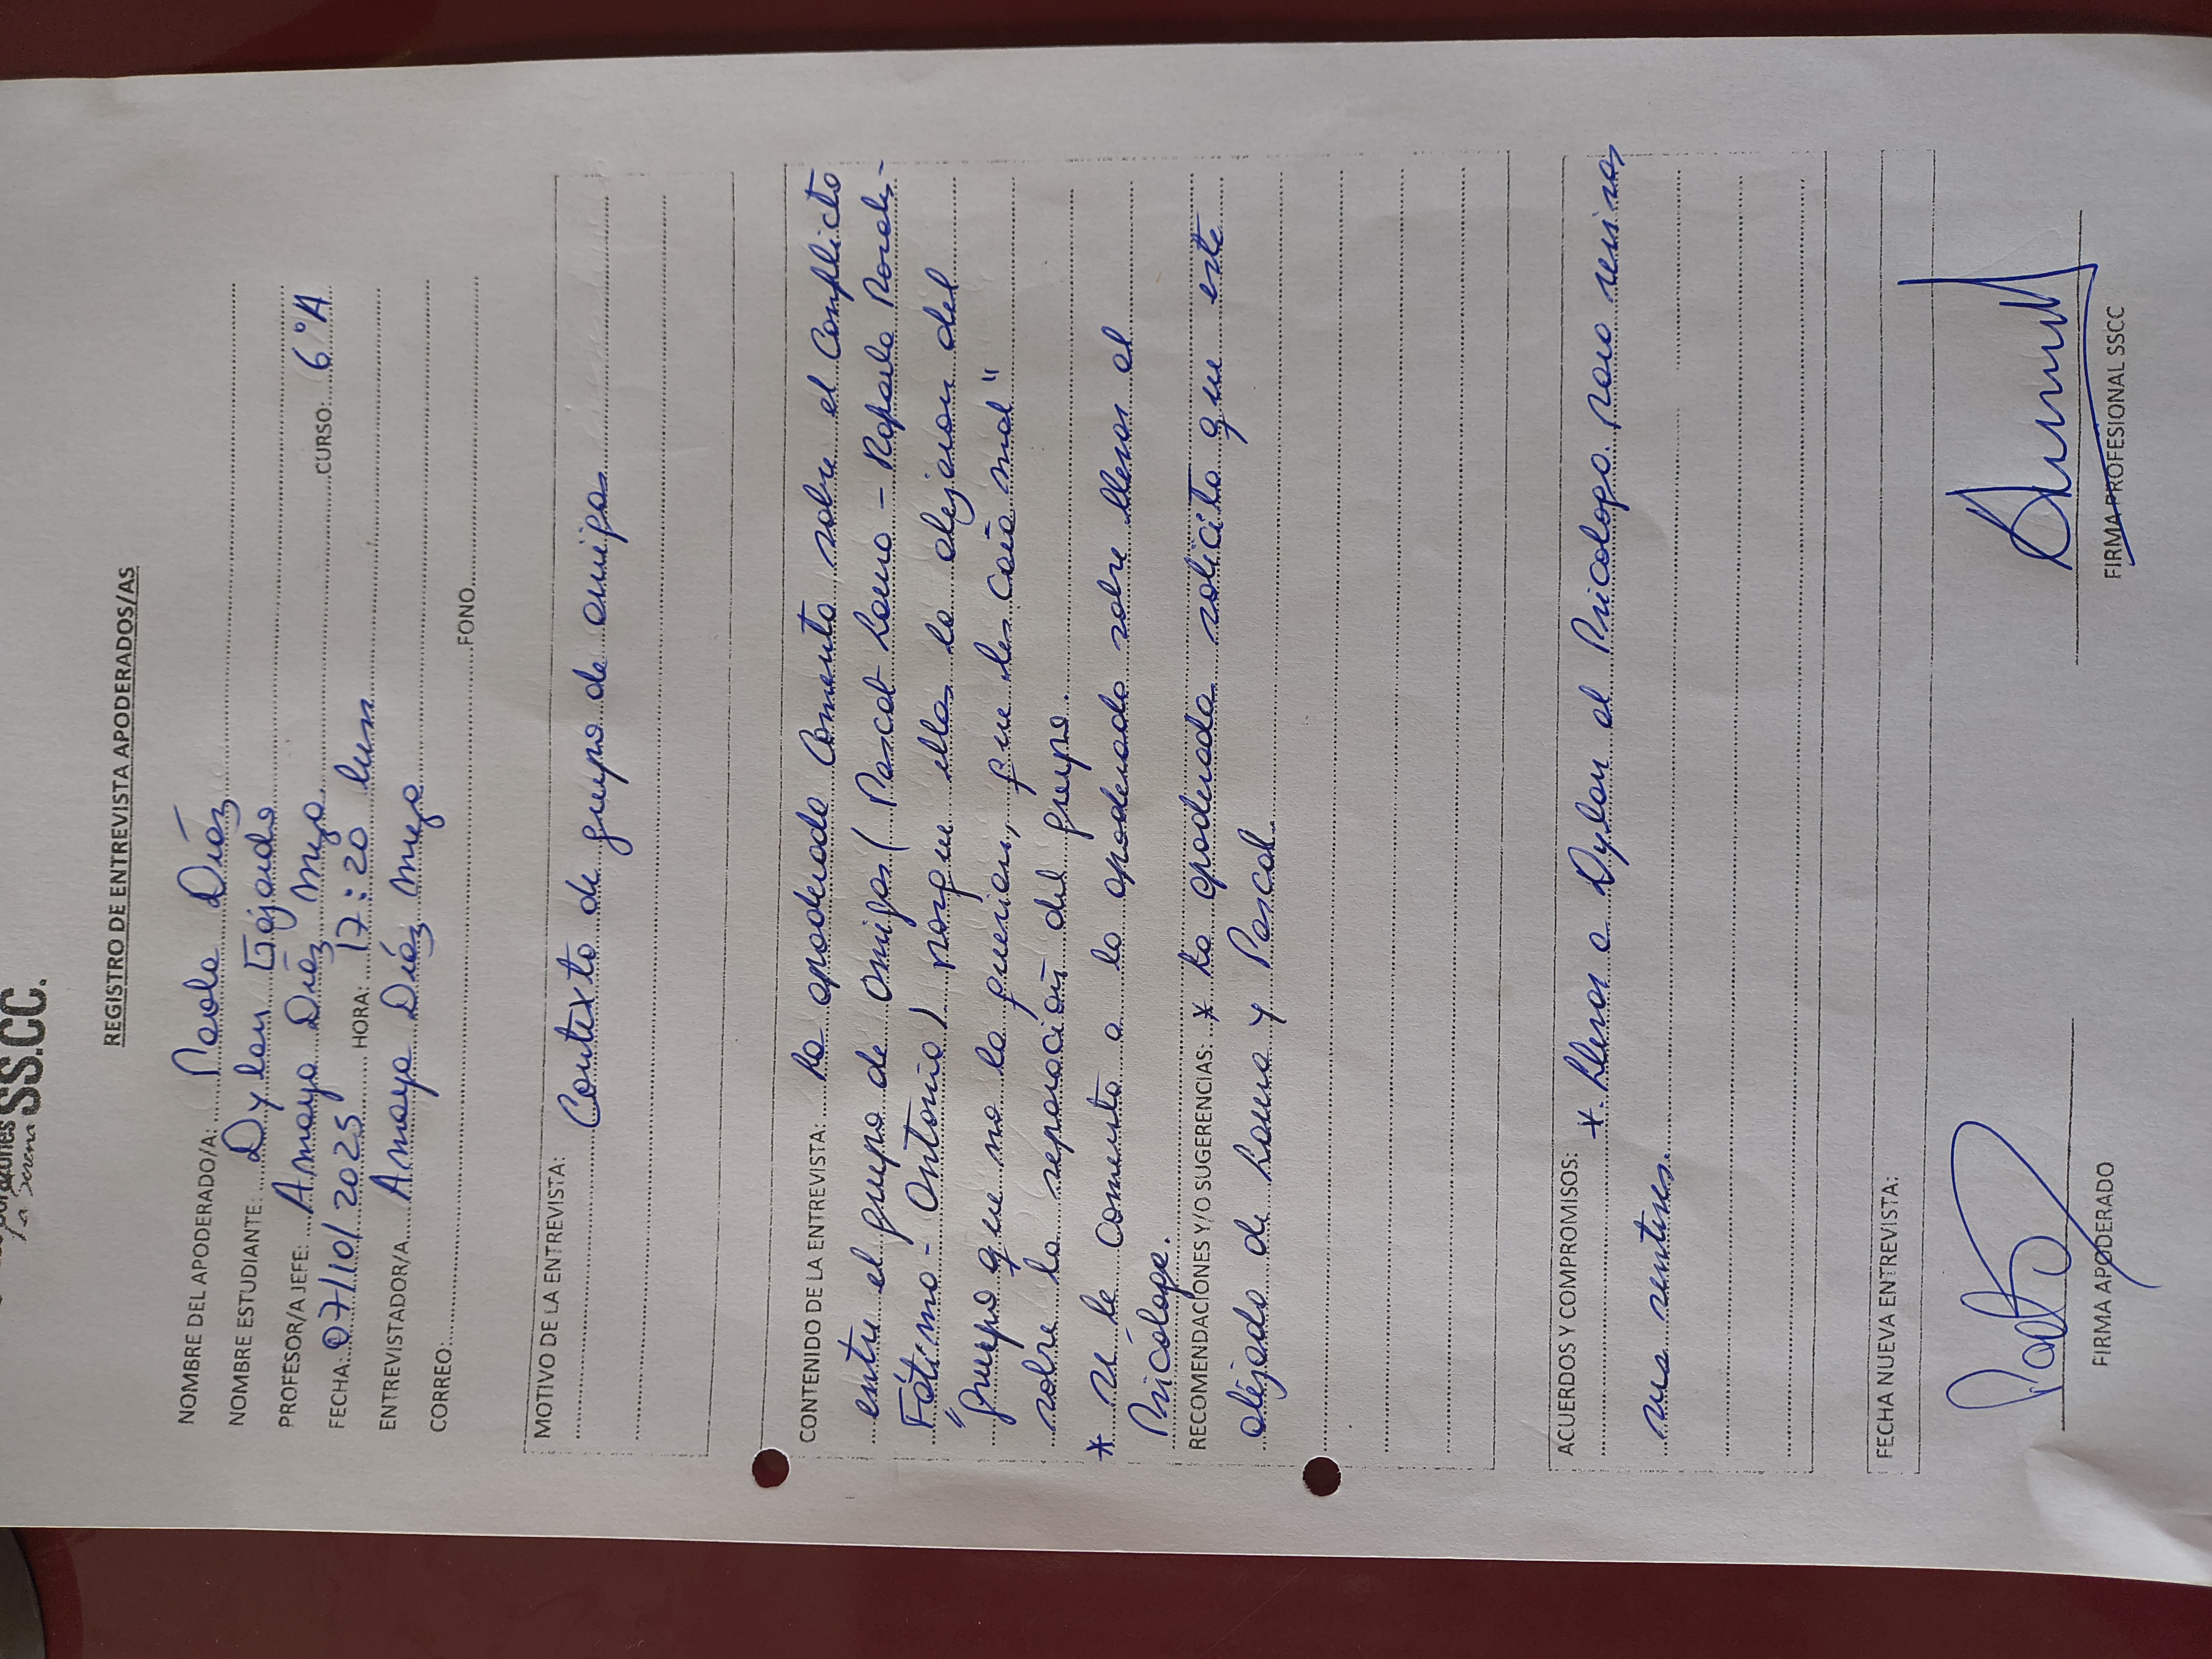 Corazones SS.CC.
La Serena
REGISTRO DE ENTREVISTA APODERADOS/AS
NOMBRE DEL APODERADO/A: Paola Díaz
NOMBRE ESTUDIANTE: Dylan Gajardo
PROFESOR/A JEFE: Amaya Díaz Muga CURSO: 6°A
FECHA: 07/10/2025 HORA: 17:20
ENTREVISTADOR/A Amaya Díaz Muga
CORREO: FONO
MOTIVO DE LA ENTREVISTA:
Contexto de grupo de amigos
CONTENIDO DE LA ENTREVISTA: La apoderada Comenta sobre el Conflicto
entre el grupo de amigos ( Pascal Laura - Rafaela
Fátima - Antonia ) porque ellas lo alejaron del
"grupo que no lo querian, que les caía mal"
sobre la separación del grupo.
* se le Comenta a la apoderada sobre llevar al
Psicologo.
RECOMENDACIONES Y/O SUGERENCIAS: * La apoderada solicita que este
alejado de Laura y Pascal.
ACUERDOS Y COMPROMISOS: * Llevar a Dylan al Psicologo para
FECHA NUEVA ENTREVISTA:
FIRMA APODERADO FIRMA PROFESIONAL SSCC